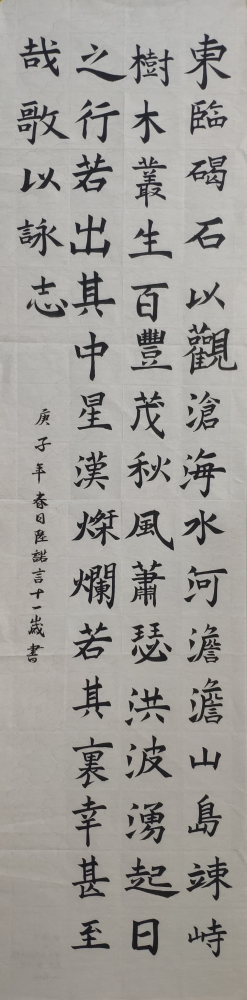 東臨碣石以觀滄海水河澹澹山島竦峙
樹木叢生百豐茂秋風蕭瑟洪波湧起日
之行若出其中星漢燦爛若其裏幸甚至
哉歌以詠志
庚子年春日陸諾言十一歲書